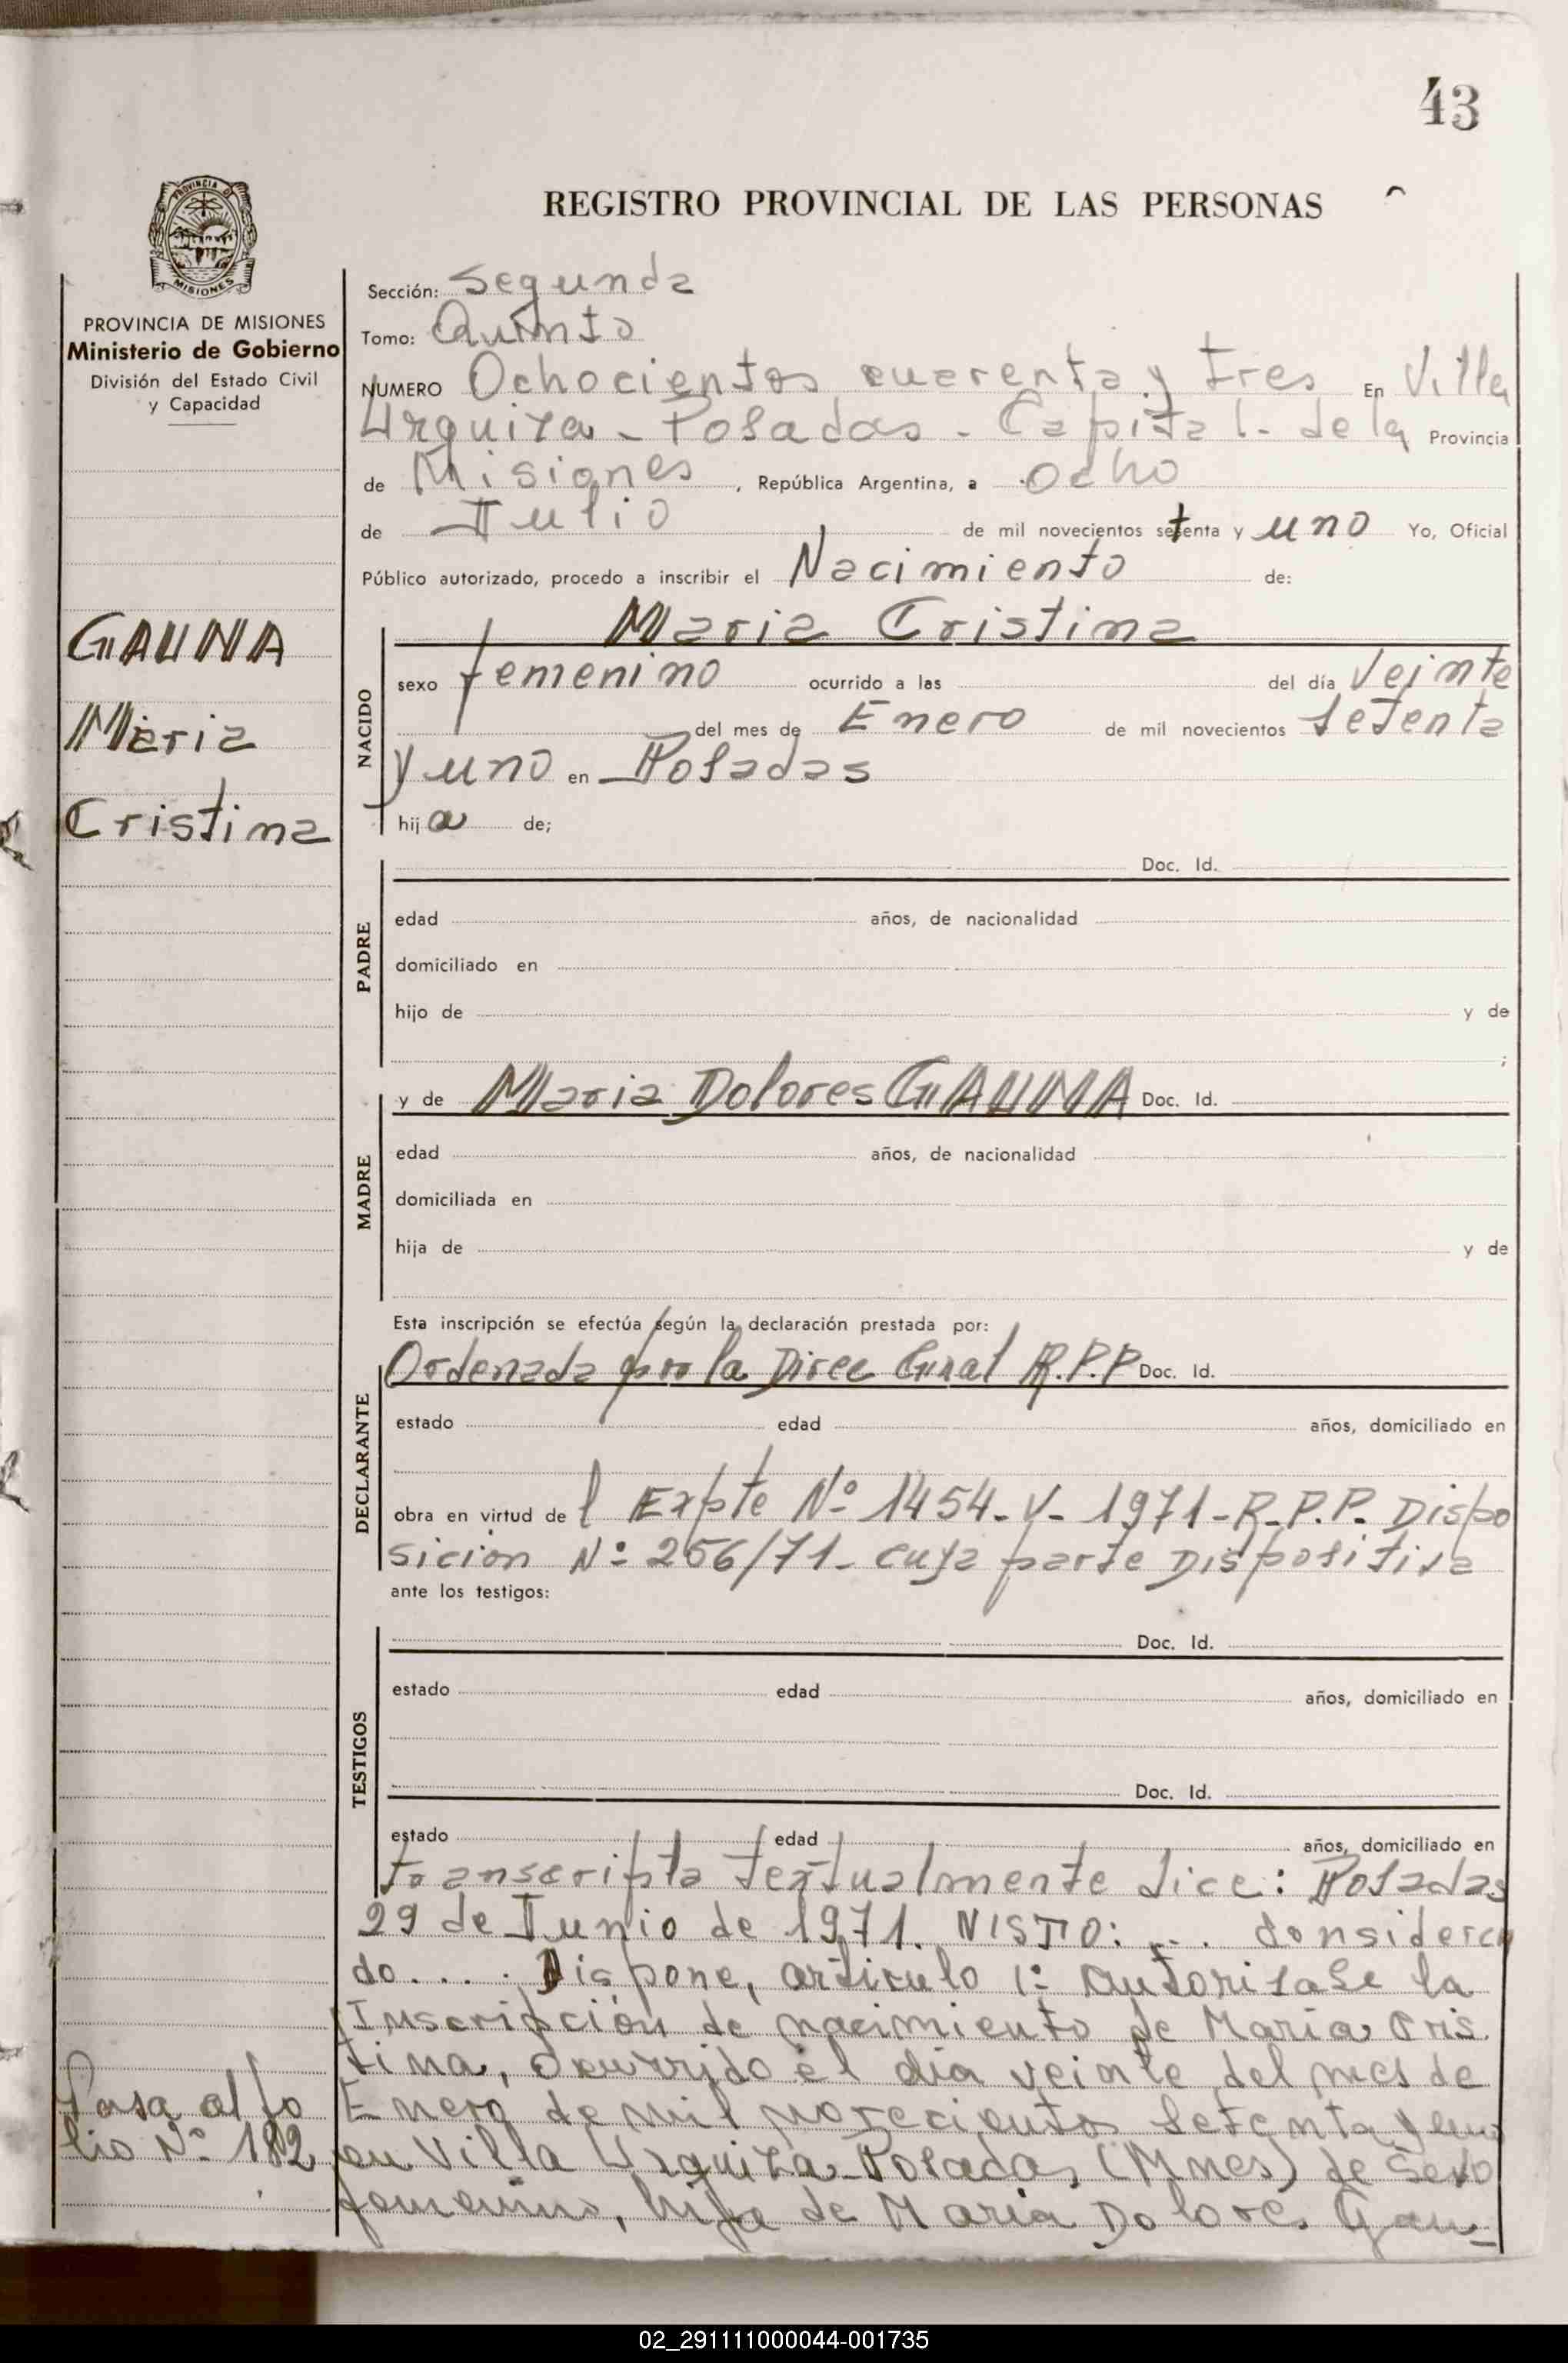 43
REGISTRO PROVINCIAL DE LAS PERSONAS
PROVINCIA DE MISIONES
Ministerio de Gobierno
División del Estado Civil
y Capacidad
Sección: Segunda
Tomo: Quinto
NUMERO Ochocientos cuarenta y tres En Villa
Urquiza - Posadas - Capital - de la Provincia
de Misiones, República Argentina, a ocho
de Julio de mil novecientos setenta y uno Yo, Oficial
Público autorizado, procedo a inscribir el Nacimiento de:
GAUNA
Maria
Cristina
NACIDO
Maria Cristina
sexo femenino ocurrido a las del día Veinte
del mes de Enero de mil novecientos setenta
y uno en Posadas
hija de;
PADRE
Doc. Id.
edad años, de nacionalidad
domiciliado en
hijo de y de
;
MADRE
y de Maria Dolores GAUNA Doc. Id.
edad años, de nacionalidad
domiciliada en
hija de y de
Esta inscripción se efectúa según la declaración prestada por:
DECLARANTE
Ordenada por la Direc Gnral R.P.P Doc. Id.
estado edad años, domiciliado en
obra en virtud del Expte Nº 1454-V-1971-R.P.P. Dispo
sicion Nº 256/71- cuya parte Dispositiva
ante los testigos:
TESTIGOS
Doc. Id.
estado edad años, domiciliado en
Doc. Id.
estado edad años, domiciliado en
transcripta textualmente dice: Posadas
29 de Junio de 1971. VISTO: ... Considera
do.... Dispone, articulo 1º autorisase la
Inscripción de nacimiento de Maria Cris
tina, ocurrido el dia veinte del mes de
Enero de mil novecientos setenta y uno
en Villa Urquiza-Posadas (Mnes) de sexo
femenino, hija de Maria Dolores Gau-
Pasa al fo
lio Nº 182
02_291111000044-001735